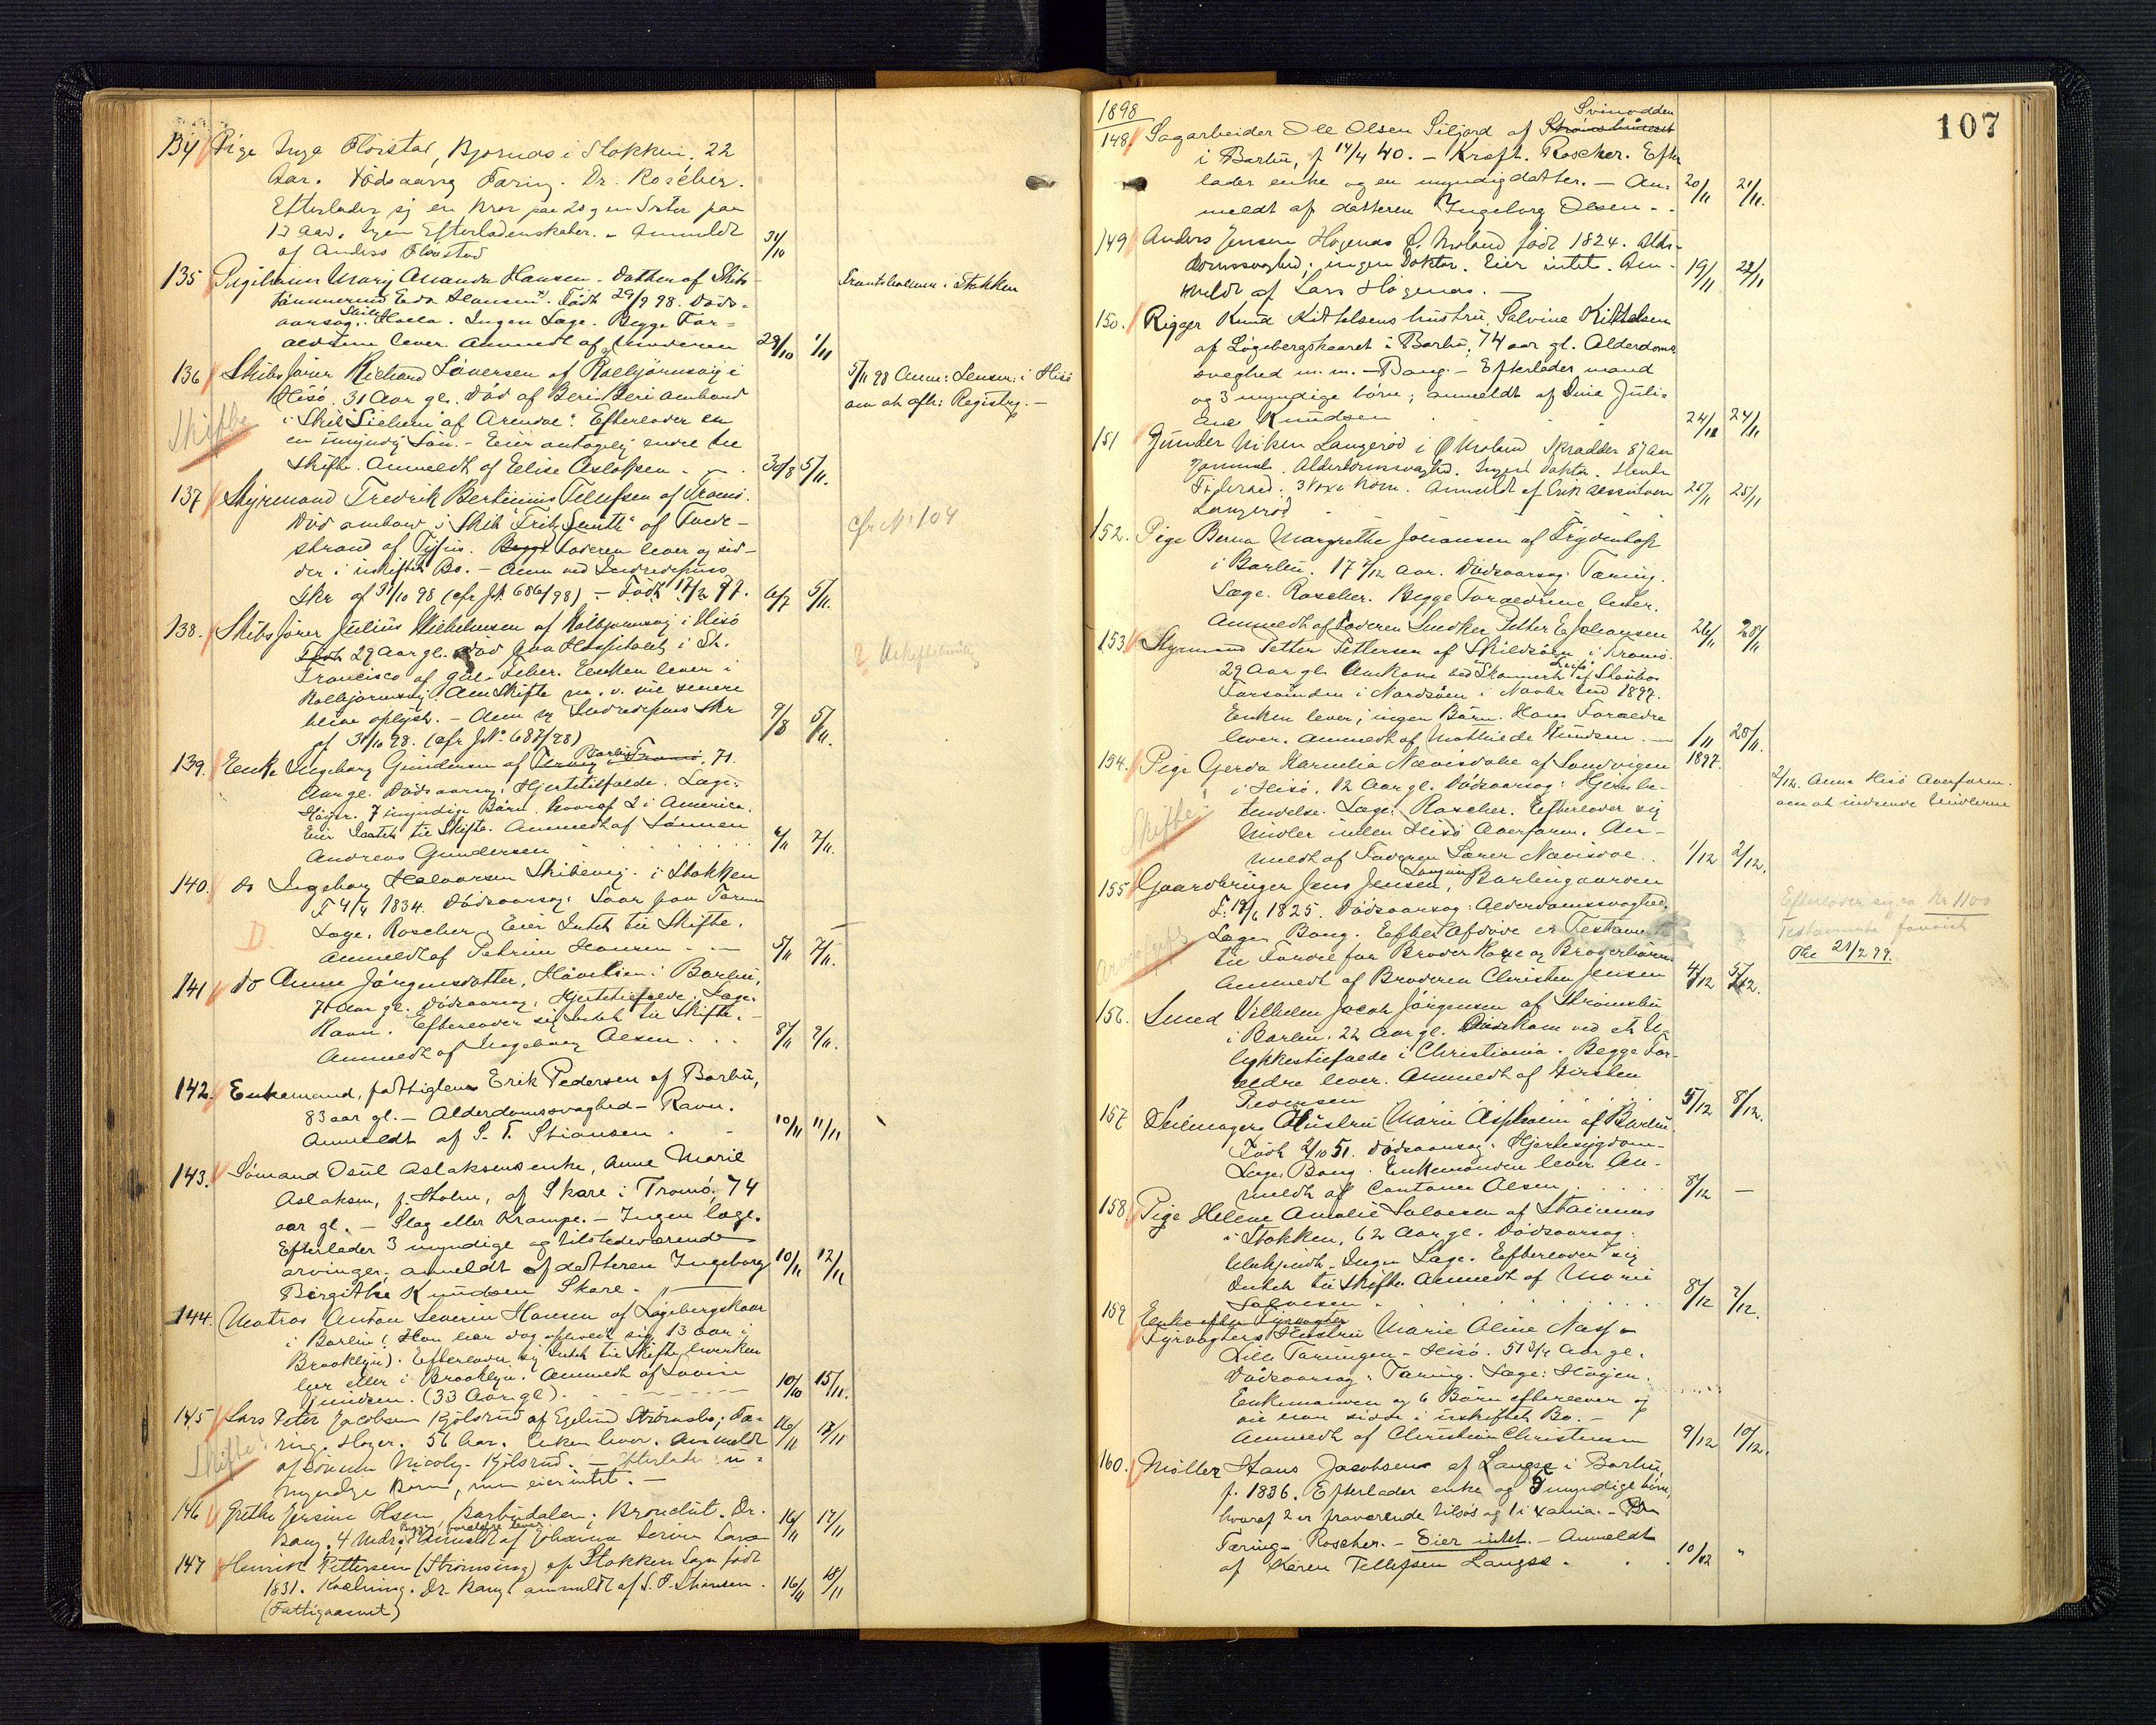 134 Pige Inga Flöistad, Bjornæs i Stokken. 22
Aar. Dödsaarsag Tæring. Dr. Roscher.
Efterlader sig en Bror paa 20 og en Söster paa
12 aar. Ingen Efterladenskaber. - Anmeldt
af Anders Flöistad 31/10
135 Pigebarn Mary Amanda Hansen. Datter af Skibs-
tömmermand Hansen. Födt 29/9 98. Döds-
aarsag: Ingen Læge. Begge For-
ældrene lever. Anmeldt af Moderen 29/10 1/11
i Stokken
136 Skibsförer Richard Söversen af Kolbjörnsvig i
Hisö. 31 Aar gl. Död af Beri Beri ombord
i Skib af Arendal. Efterlader en
en umyndig Sön. - Eier antagelig endel til
Skifte. Anmeldt af Elise Aslaksen 30/8 5/11.
5/11 98 Anm: Lensm: i Hisö
om at aftr: Registrg. -
Skifte
137 Styrmand Fredrik Bertinius Tellefsen af Tromö.
Död ombord i Skib "Fritz Smith" af Tvede-
strand af Tyfus. Begge Faderen lever og sid-
der i uskiftet Bo. - Anm ved Indredepnts
Skr af 31/10 98 (cfr J№ 686/98) - Födt 17/2 77. 6/7 5/11.
cfr № 104
138. Skibsförer Julius Wilhelmsen af Kolbjörnsvig i Hisö
Födt 29 Aar gl. Död paa Hospitalet i St.
Francisco af gul Feber. Enken lever i
Kolbjörnsvig. Om Skifte m. v. vil senere
blive oplyst. - Anm og Indredepnts Skr
af 31/10 98. (cfr J№ 687/98) 9/8 5/11.
? Uskiftebevilling
139. Enke Ingeborg Gundersen af Barbu Tromö, 71.
Aar gl. Dödsaarsag: Hjertetilfælde. Læge:
Höyer. 7 myndige Börn. hvoraf 2 i America.
Eier Intet til Skifte. Anmeldt af Sönnen
Andreas Gundersen 6/11 7/11.
140. do Ingeborg Halvorsen Skibevig. i Stokken
F 4/4 1834. Dödsaarsag: Saar paa Tarmen
Læge, Roscher. Eier Intet til Skifte.
Anmeldt af Petrine Hansen 5/11 7/11.
D.
141 do Anne Jörgensdatter, i Barbu,
70 Aar gl. Dödsaarsag: Hjertetilfælde. Læge:
Ravn. Efterlader sig Intet til Skifte. -
Anmeldt af Ingeborg Olsen 8/11 9/11.
142. Enkemand, fattiglem Erik Pedersen af Barbu,
83 aar gl. - Alderdomssvaghed - Ravn.
Anmeldt af S. T. Stiansen 10/11 11/11
143. Sömand Osul Aslaksens enke, Anne Marie
Aslaksen, f. Holm, af Skare i Tromö, 74
aar gl. - Slag eller Krampe. - Ingen læge.
Efterlader 3 myndige og tilstedeværende
arvinger; anmeldt af datteren Ingeborg
Birgithe Knudsen Skare. 10/11 12/11
144. Matros Anton Severin Hansen af Lögebergskaar
i Barbu (Han har dog opholdt sig 13 aar i
Brooklyn). Efterlader sig Intet til Skifte hverken
her eller i Brooklyn. Anmeldt af Lovise
Gundersen. (33 Aar gl). 10/10 15/11.
145 Lars Peter Jacobsen Kjölsrud af Eglund Strömsbo; Tæ-
ring. Höyer. 56 Aar. Enken lever. Anmeldt
af sönnen Nicolay Kjölsrud. - Efterlader u-
myndige Börn, men eier intet. - 16/11 17/11
Skifte!
146 Grethe Jensine Olsen, Barbudalen; Bronchit. Dr.
Bang. 4 Mdr. Begge forældre lever. Anmeldt af Johanna Serine Larsen 16/11 17/11
147 Henrik Pettersen (Strömseng) af Stokken Sogn födt
1831. Koldning. Dr. Bang. anmeldt af S. T. Stiansen. 16/11 18/11
(Fattiglemmet)
107
1898
148. Sagarbeider Ole Olsen Siljord af Strömsbuneset Svinodden
i Barbu, f. 14/4 40. - Kræft. Roscher. Efter
lader enke og en myndig datter. - An-
meldt af datteren Ingeborg Olsen. - 20/11 21/11.
149 Anders Jensen Högenæs Ö. Moland födt 1824. Alder-
domssvaghed; ingen Doktor. Eier intet. An-
meldt af Lars Högenæs. - 19/11 22/11
150. Rigger Knud Kittelsens hustru, Salvine Kittelsen
af Lögebergskaaret i Barbu, 74 aar gl. Alderdoms
svaghed m. m. - Bang. - Efterlader mand
og 3 myndige börn; anmeldt af Dine Juli-
ane Knudsen 24/11 24/11
151 Gunder Nilsen Langeröd i Ö Moland Skrædder 87 Aar
gammel. Alderdomssvaghed. Ingen Doktor. Havde
Föderaad. 3 voxne börn. Anmeldt af Erik
Langeröd 25/11 25/11
152. Pige Berna Margrethe Johansen af Frydenlöst
i Barbu. 17 7/12 aar. Dödsaarsag: Tæring.
Læge. Roscher. Begge Forældrene lever.
Anmeldt af Faderen Snedker Petter E. Johansen 26/11 28/11
153 Styrmand Petter Pettersen af Skilsöen i Tromö.
29 aar gl. Omkom ved
Forsvinden i Nordsöen i Novbr. 1897.
Enken lever; ingen Börn. Hans Forældre
lever. Anmeldt af Mathilde Knudsen. 1/11 1897. 28/11.
154. Pige Gerda Kornelia Nævisdal af Sandvigen
i Hisö. 12 Aar gl. Dödsaarsag: Hjernebe-
tændelse. Læge: Roscher. Efterlader sig
Midler inden Hisö Overform. An-
meldt af Faderen Sörer Nævisdal. 1/12 2/12.
Skifte!
2/12. Anm Hisö Overform.
om at indsende Midlerne
155 Gaardbruger Jens Jensen, Langum Barbugaarden
F. 18/6 1825. Dödsaarsag: Alderdomssvaghed.
Læge Bang. Efter Afdöde er Testamente
til Fordel for Broder Kone og Broderbörn
Anmeldt af Broderen Christen Jensen 4/12 5/12.
Efterlader sig ca Kr 1100
Testamente
Olr 21/2 99.
156. Smed Vilhelm Jacob Jörgensen af Strömsbu
i Barbu. 22 Aar gl. Omkom ved et U-
lykkestilfælde i Christiania. Begge For-
ældre lever. Anmeldt af Kirsten
Pedersen 5/12 8/12.
157 Seilmagers Hustru Marie Aspheim af Barbu.
Födt 2/10 51. Dödsaarsag: Hjertesygdom.
Læge. Bang. Enkemanden lever. An-
meldt af Olsen 8/12 -
158. Pige Helene Amalie Salvesen af
i Stokken. 62 Aar gl. Dödsaarsag:
Ubekjendt. Ingen Læge. Efterlader sig
Intet til Skifte. Anmeldt af Marie
Salvesen 8/12 9/12.
159 Enke efter Fyrvogter
Fyrvogters Hustru Marie Oline Næss -
Lille Torungen - Hisö. 51 3/4 Aar gl.
Dödsaarsag: Tæring. Læge: Höyer.
Enkemanden og 6 Börn efterlever og
vil han sidde i uskiftet Bo. -
Anmeldt af Christian Christensen 9/12 10/12.
160. Möller Hans Jacobsen af Langsæ i Barbu,
f. 1836. Efterlader enke og 5 myndige börn,
hvoraf 2 er fraværende tilsjös og 1 i Xania. -
Tæring - Roscher. - Eier intet. - Anmeldt
af Karen Tellefsen Langsæ. 10/12 "